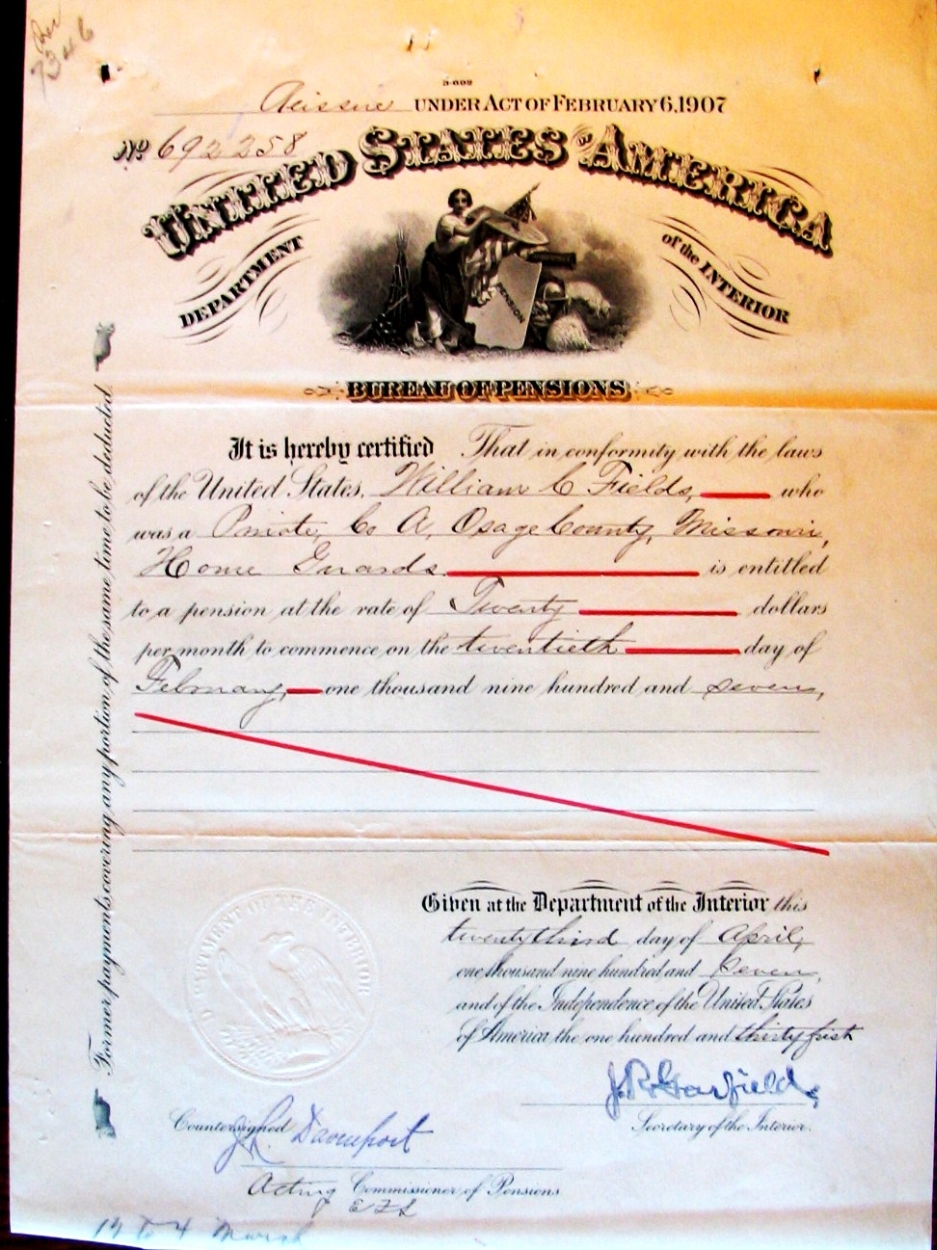 7346
3-092
Reissue UNDER ACT OF FEBRUARY 6, 1907
No 692258
UNITED STATES OF AMERICA
DEPARTMENT of the INTERIOR
UNION
BUREAU OF PENSIONS
It is hereby certified That in conformity with the laws
of the United States, William C Fields, who
was a Private, Co A, Osage County, Missouri,
Home Guards is entitled
to a pension at the rate of Twenty dollars
per month to commence on the twentieth day of
February, one thousand nine hundred and seven,
Former payments covering any portion of the same time to be deducted.
Given at the Department of the Interior this
twenty third day of April,
one thousand nine hundred and seven,
and of the Independence of the United States
of America the one hundred and thirty first
DEPARTMENT OF THE INTERIOR
J.R. Garfield,
Secretary of the Interior.
Countersigned
J L Davenport
Acting Commissioner of Pensions